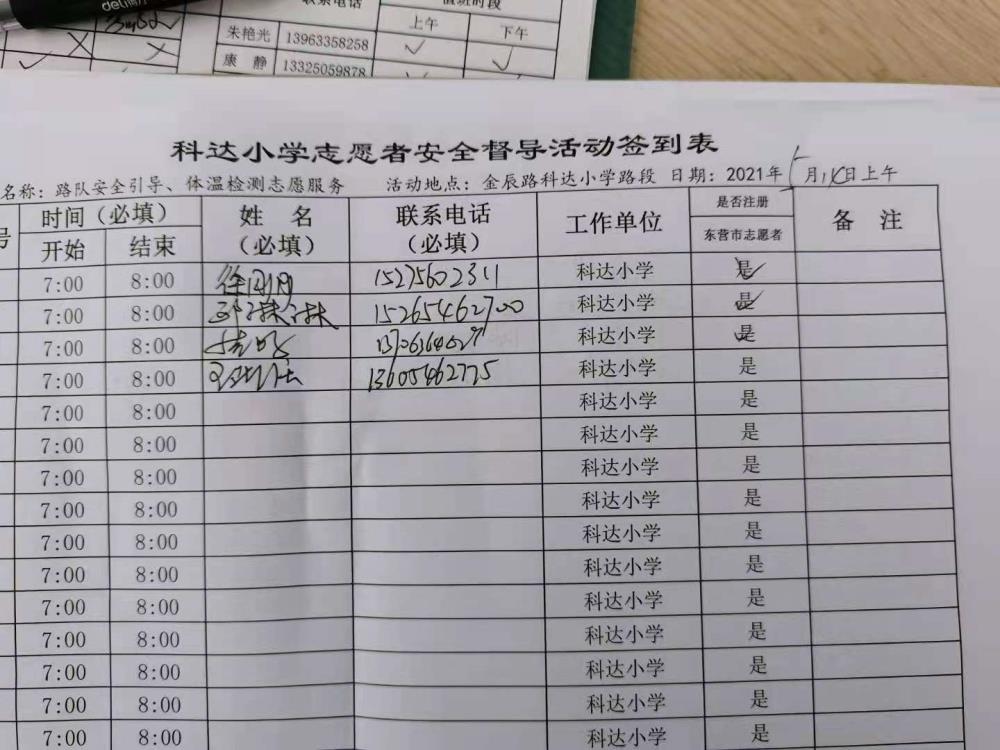 deli
联系电话 值班时段
上午 下午
朱艳光 13963358258 ✓ ✓
康 静 13325059878
科达小学志愿者安全督导活动签到表
名称：路队安全引导、体温检测志愿服务 活动地点：金辰路科达小学路段 日期：2021年 月 日上午
号 时间（必填） 姓 名（必填） 联系电话（必填） 工作单位 是否注册东营市志愿者 备 注
开始 结束
7:00 8:00 15275602311 科达小学 是✓
7:00 8:00 15265462700 科达小学 是✓
7:00 8:00 科达小学 是✓
7:00 8:00 13605462775 科达小学 是
7:00 8:00 科达小学 是
7:00 8:00 科达小学 是
7:00 8:00 科达小学 是
7:00 8:00 科达小学 是
7:00 8:00 科达小学 是
7:00 8:00 科达小学 是
7:00 8:00 科达小学 是
7:00 8:00 科达小学 是
7:00 8:00 科达小学 是
7:00 8:00 科达小学 是
7:00 8:00 科达小学 是